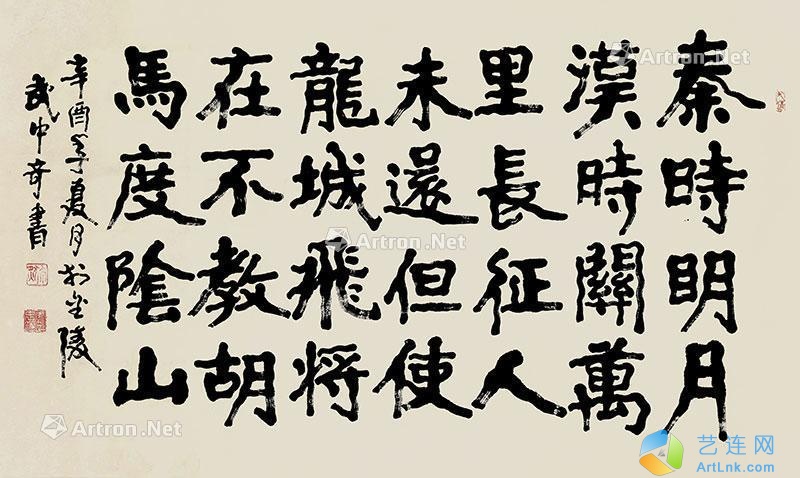 秦時明月
漢時關萬
里長征人
未還但使
龍城飛将
在不教胡
馬度陰山
辛酉季夏月於金陵
武中奇書
Artron.Net
Artron.Net
Artron.Net
Artron.Net
Artron.Net
艺连网
ArtLnk.com